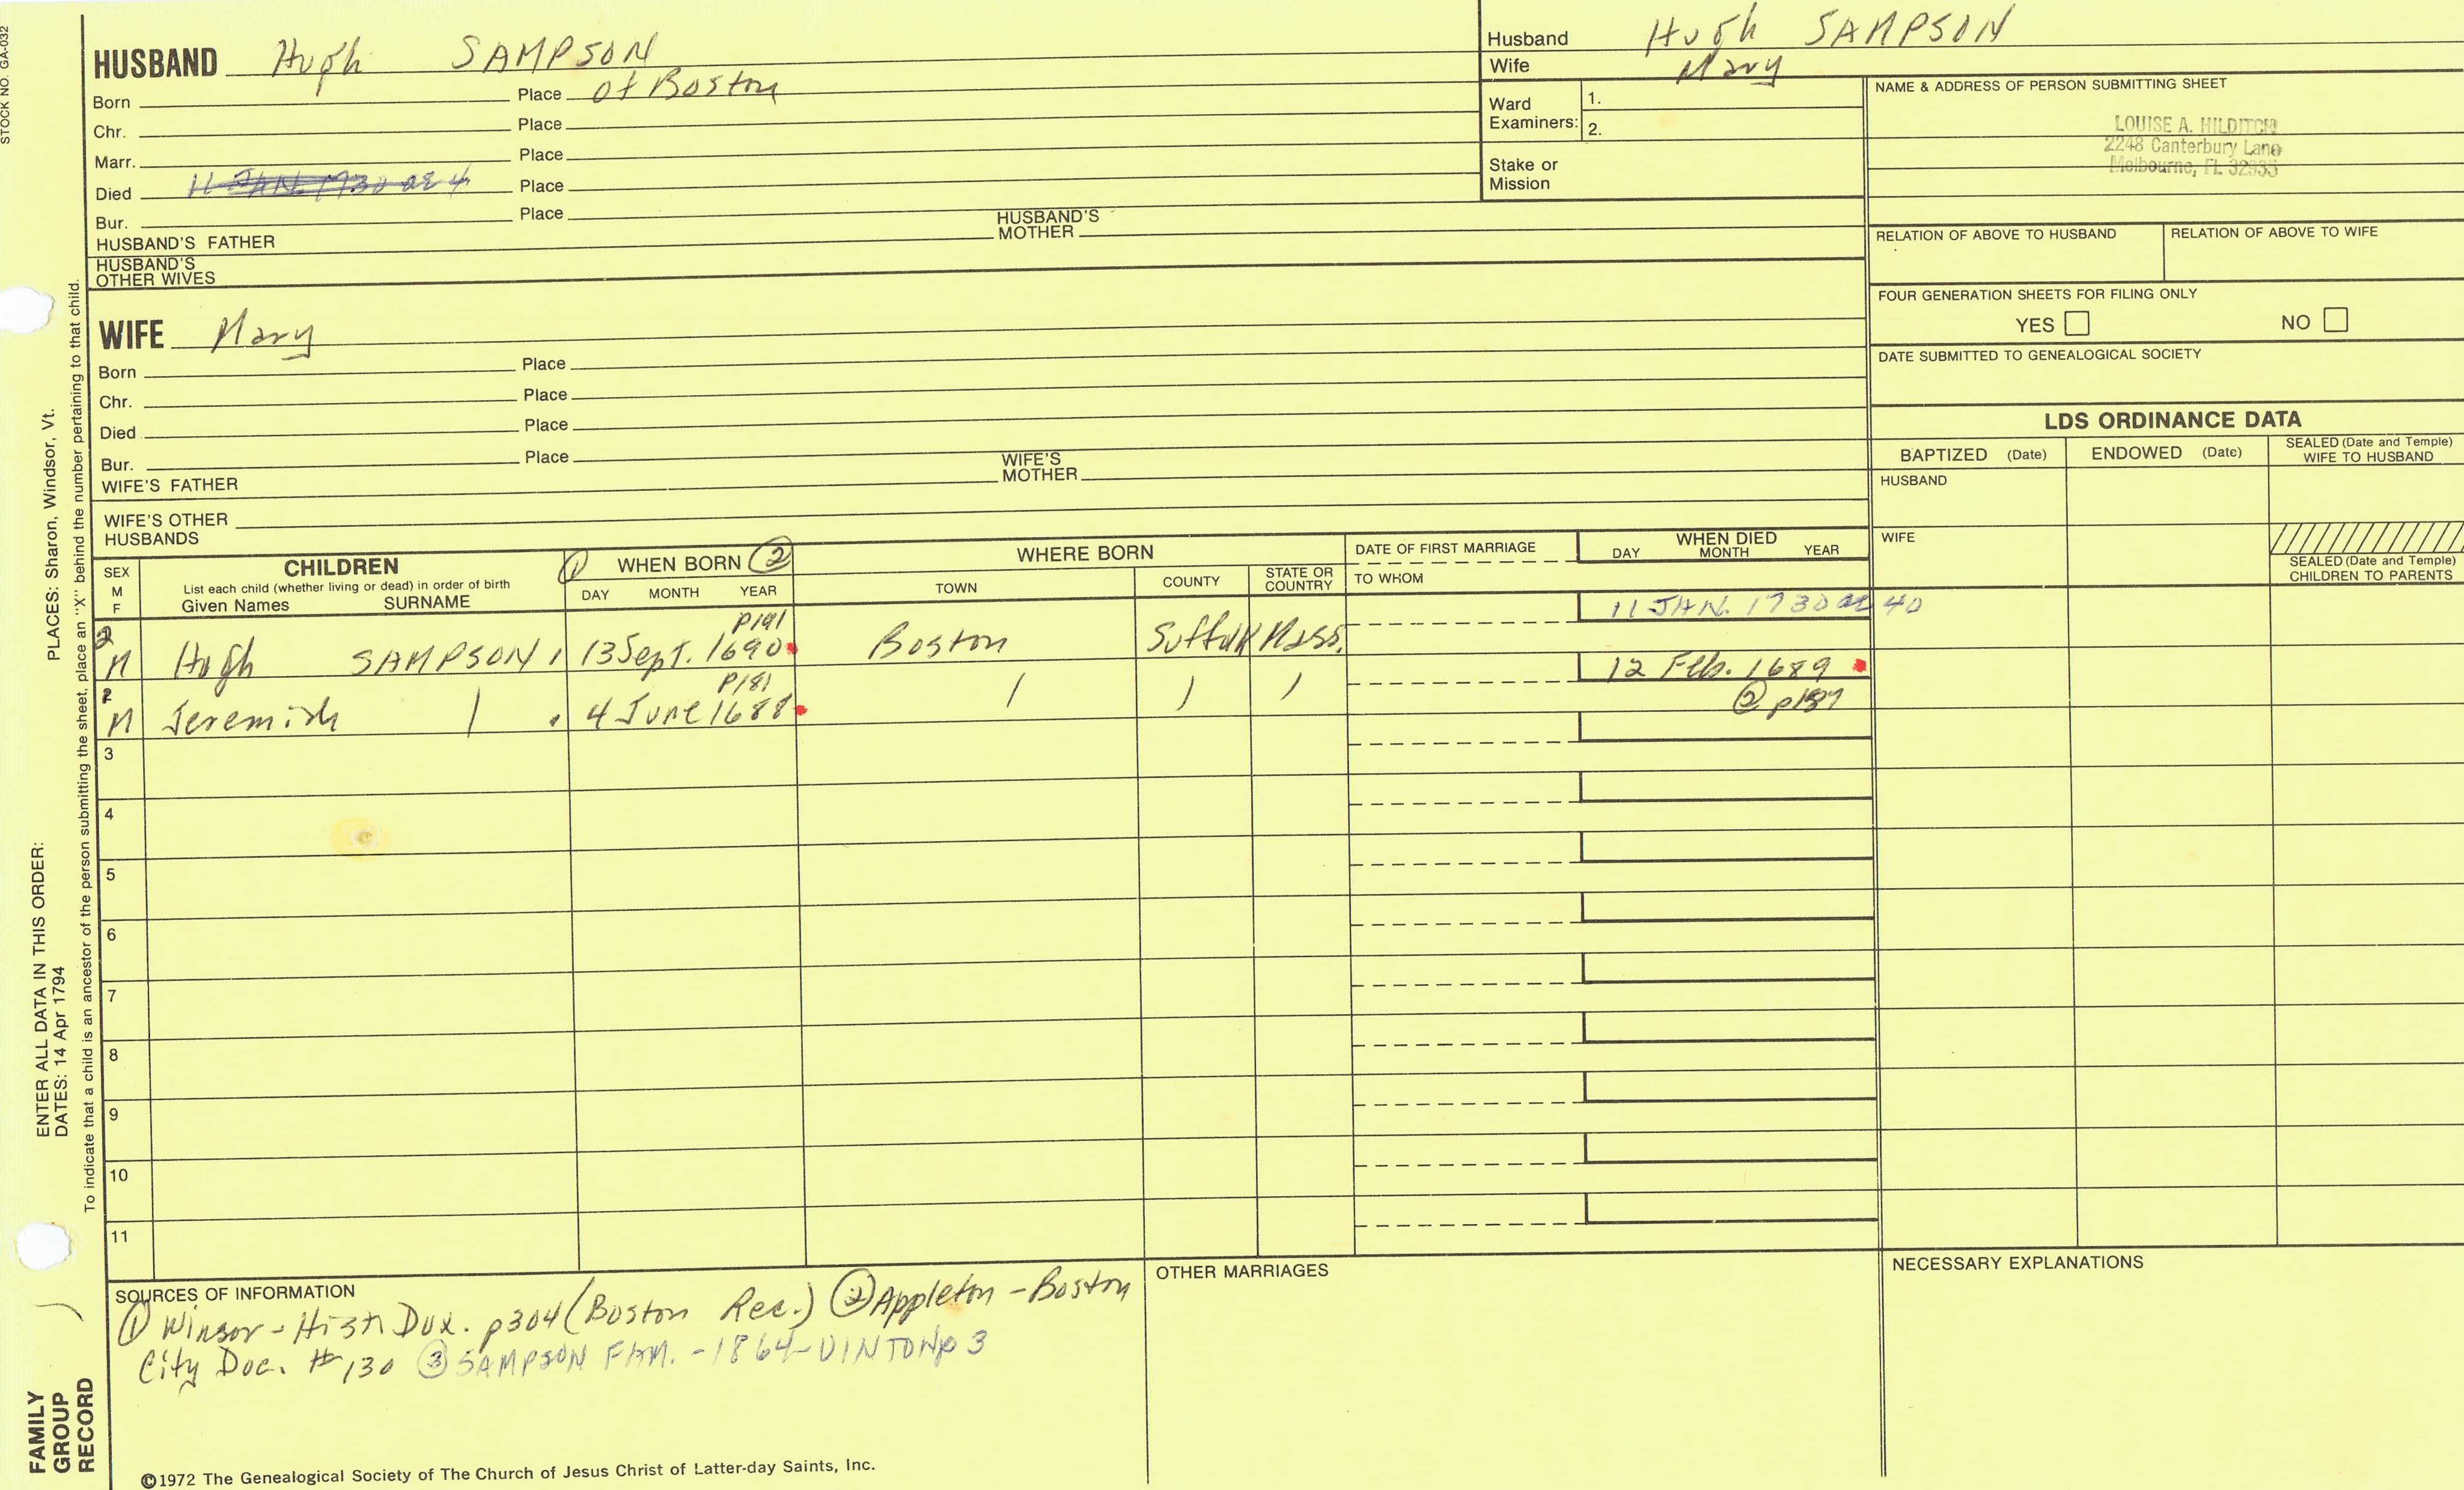 STOCK NO. GA-032
HUSBAND Hugh SAMPSON
Born Place of Boston
Chr. Place
Marr. Place
Died 11 JAN. 1730 ae 4 Place
Bur. Place
HUSBAND'S FATHER HUSBAND'S MOTHER
HUSBAND'S OTHER WIVES
Husband Hugh SAMPSON
Wife Mary
Ward Examiners: 1.
2.
Stake or Mission
NAME & ADDRESS OF PERSON SUBMITTING SHEET
LOUISE A. HILDITCH
2248 Canterbury Lane
Melbourne, FL 32935
RELATION OF ABOVE TO HUSBAND RELATION OF ABOVE TO WIFE
FOUR GENERATION SHEETS FOR FILING ONLY
YES NO
DATE SUBMITTED TO GENEALOGICAL SOCIETY
WIFE Mary
Born Place
Chr. Place
Died Place
Bur. Place
WIFE'S FATHER WIFE'S MOTHER
WIFE'S OTHER HUSBANDS
LDS ORDINANCE DATA
BAPTIZED (Date) ENDOWED (Date) SEALED (Date and Temple) WIFE TO HUSBAND
HUSBAND
WIFE
SEALED (Date and Temple) CHILDREN TO PARENTS
SEX M F
CHILDREN
List each child (whether living or dead) in order of birth
Given Names SURNAME
① WHEN BORN ②
DAY MONTH YEAR
WHERE BORN
TOWN COUNTY STATE OR COUNTRY
DATE OF FIRST MARRIAGE
TO WHOM
WHEN DIED
DAY MONTH YEAR
11 JAN. 1730 ae 40
p191
2 M Hugh SAMPSON 13 Sept. 1690 Boston Suffolk Mass.
12 Feb. 1689
p181
2 M Jeremiah 4 June 1688
② p187
3
4
5
6
7
8
9
10
11
SOURCES OF INFORMATION
① Winsor - Hist Dux. p304 (Boston Rec.) ② Appleton - Boston
City Doc. # 130 ③ SAMPSON FAM. - 1864 - VINTON p 3
OTHER MARRIAGES
NECESSARY EXPLANATIONS
©1972 The Genealogical Society of The Church of Jesus Christ of Latter-day Saints, Inc.
FAMILY GROUP RECORD
ENTER ALL DATA IN THIS ORDER:
DATES: 14 Apr 1794
PLACES: Sharon, Windsor, Vt.
To indicate that a child is an ancestor of the person submitting the sheet, place an "X" behind the number pertaining to that child.